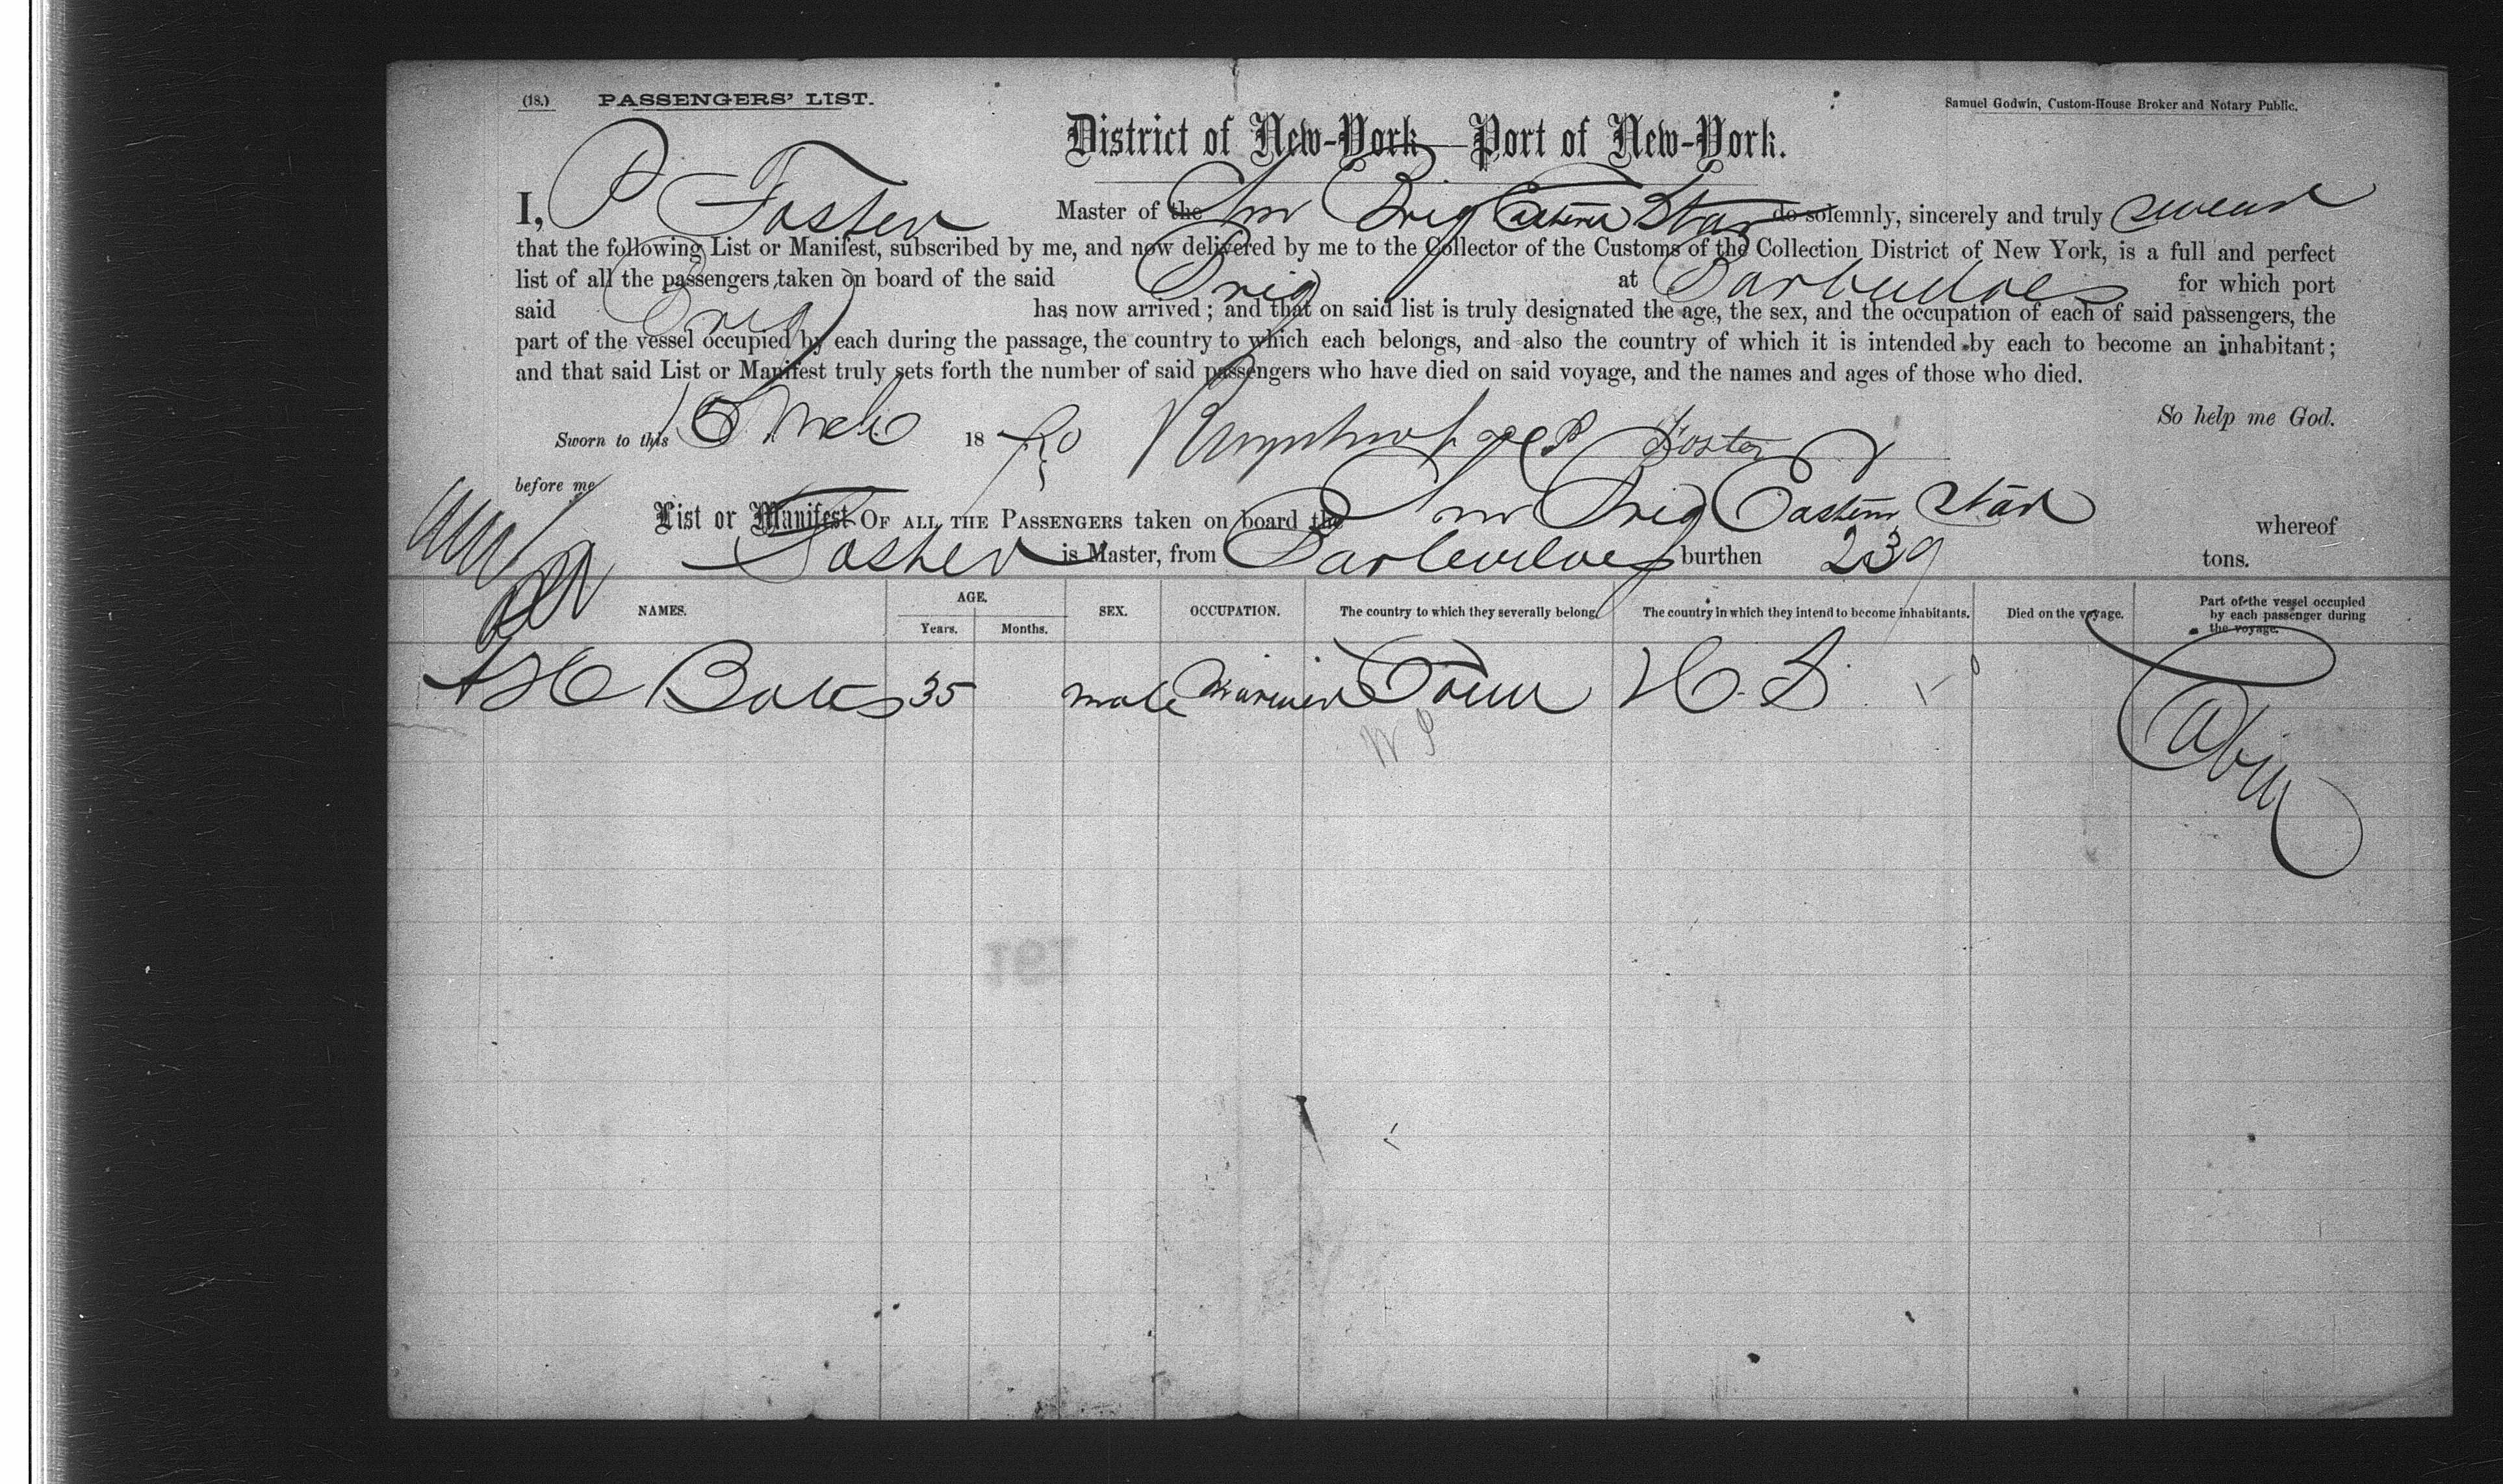 (18.) PASSENGERS' LIST.
Samuel Godwin, Custom-House Broker and Notary Public.
District of New-York—Port of New-York.
I, P Foster Master of the Am Brig Eastern Star do solemnly, sincerely and truly swear
that the following List or Manifest, subscribed by me, and now delivered by me to the Collector of the Customs of the Collection District of New York, is a full and perfect
list of all the passengers taken on board of the said Brig at Barbadoes for which port
said Brig has now arrived; and that on said list is truly designated the age, the sex, and the occupation of each of said passengers, the
part of the vessel occupied by each during the passage, the country to which each belongs, and also the country of which it is intended by each to become an inhabitant;
and that said List or Manifest truly sets forth the number of said passengers who have died on said voyage, and the names and ages of those who died.
So help me God.
Sworn to this 15 Mch 1880 P Foster
before me
List or Manifest OF ALL THE PASSENGERS taken on board the Am Brig Eastern Star whereof
Foster is Master, from Barbadoes burthen 239 tons.
NAMES. AGE. Years. Months. SEX. OCCUPATION. The country to which they severally belong. The country in which they intend to become inhabitants. Died on the voyage. Part of the vessel occupied by each passenger during the voyage.
Bates 35 male Mariner U. S. Cabin
191